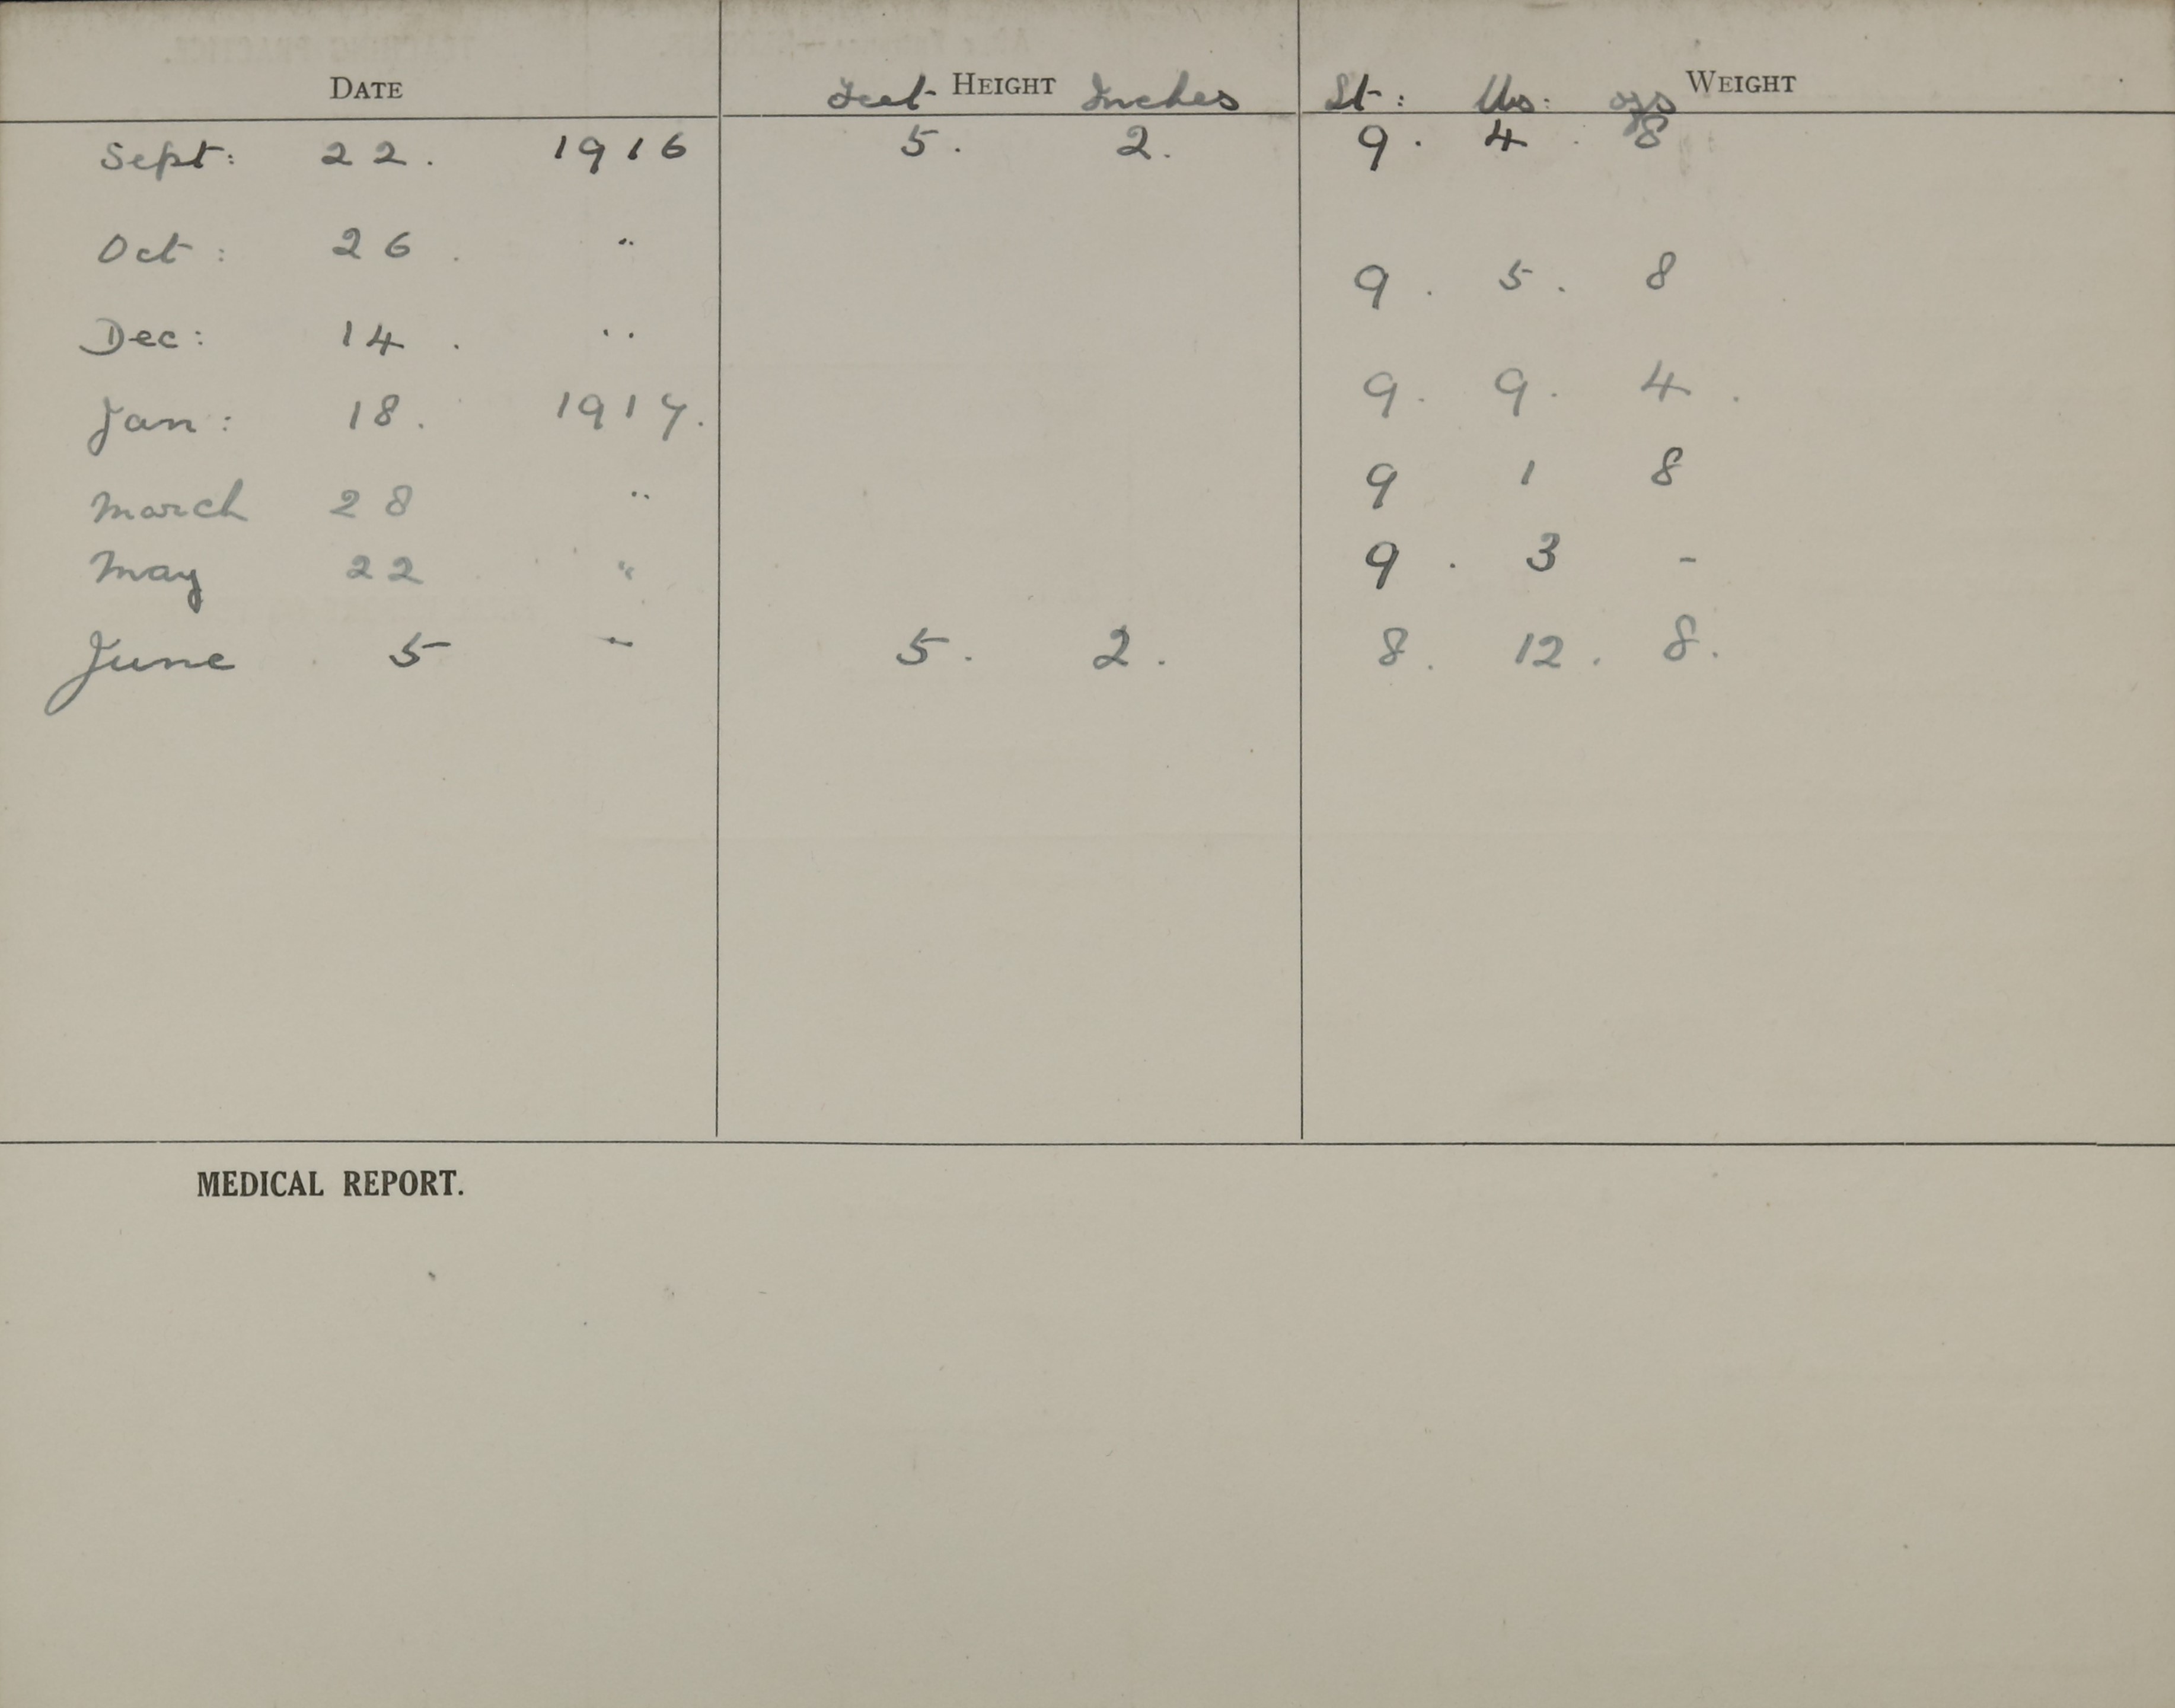 DATE Feet HEIGHT Inches St: lbs: ozs WEIGHT
Sept: 22. 1916 5. 2. 9. 4. 8
Oct: 26. " 9. 5. 8
Dec: 14. " 9. 9. 4.
Jan: 18. 1917. 9 1 8
March 28 " 9. 3 -
May 22 "
June 5 " 5. 2. 8. 12. 8.
MEDICAL REPORT.